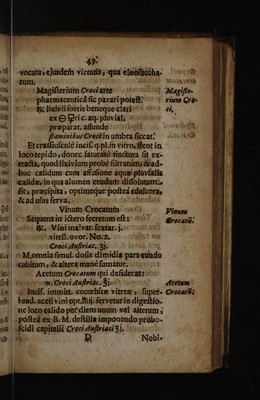 49.
vocata, ejusdem virtutis, qua elæosaccha-
rum.
Magisterium Croci arte
pharmaceutica sic parari potest.
Magiste-
rium Cro-
ci.
℞ lixivii fortis beneque clari
ex ⊖ ri c. aq. pluvial.
præparat. affunde
staminibus Croci in umbra siccat.
Et crassiusculè incis. q. pl. in vitro, stent in
loco tepido, donec saturatè tinctura sit ex-
eracta, quod lixivium probè filtratum, & ad-
huc calidum cum affusione aquæ pluvialis
calidæ, in qua alumen crudum dissolutum,
sit, præcipita, optimeque posteà edulcora,
& ad usus serva.
Vinum Crocatum
Vinum
Crocatū.
Sequens in ictero secretum est:
℞. Vini malvat. sextar. j.
vitell. ovor. No. 2.
Croci Austriac. ʒj.
M. omnia simul. dosis dimidia pars eundo
cubitum, & altera mane sumatur.
Acetum Crocatum qui desiderat:
Acetum
Crocatū:
℞. Croci Austriac. ℥j.
Incis. immitt. cucurbitæ vitreæ, super-
fund. aceti vini opt. servetur in digestio-
ne loco calido per diem unum vel alterum,
posteà ex B. M. destilla imponendo probo-
scidi capitelli Croci Austriaci ʒj.
D
Nobi-